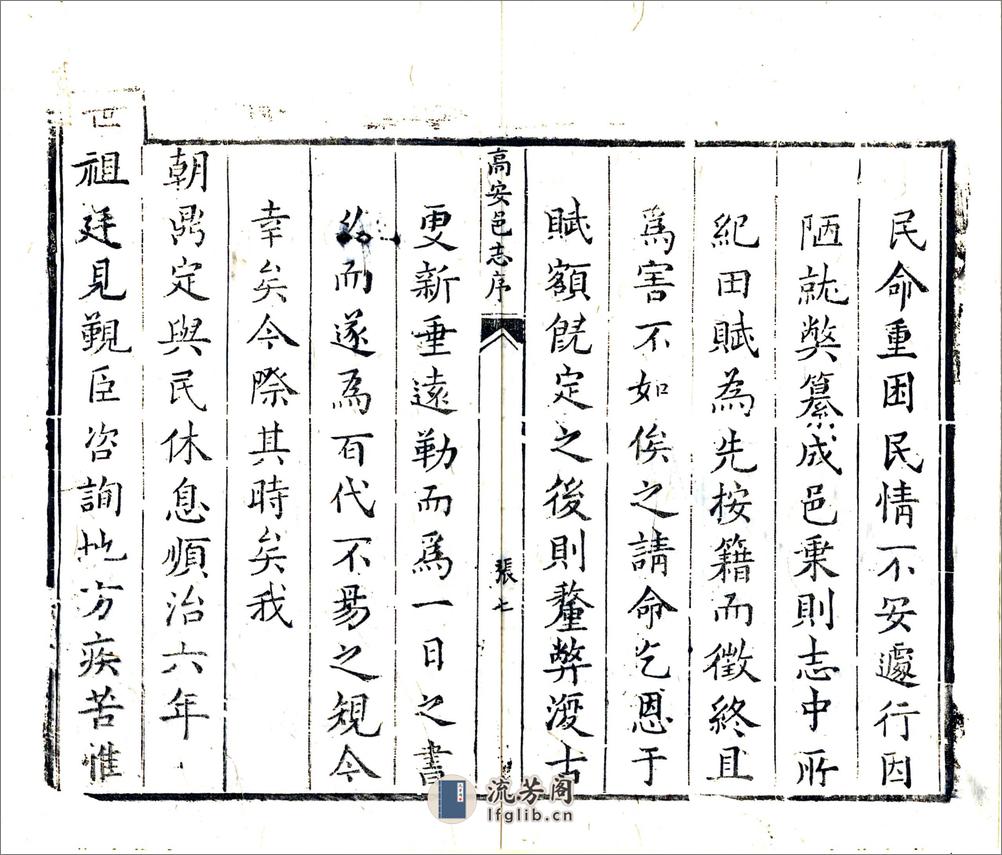 民命重困民情不安遽行因
陋就獘纂成邑乗則志中所
紀田賦為先按籍而徵終且
爲害不如俟之請命乞恩于
賦額旣定之後則釐弊復古
高安邑志序
張七
更新垂遠勒而爲一日之書
而遂爲百代不易之規今
幸矣今際其時矣我
朝鼎定與民休息順治六年
世祖廷見覲臣咨詢地方疾苦惟
流芳阁
lfglib.cn